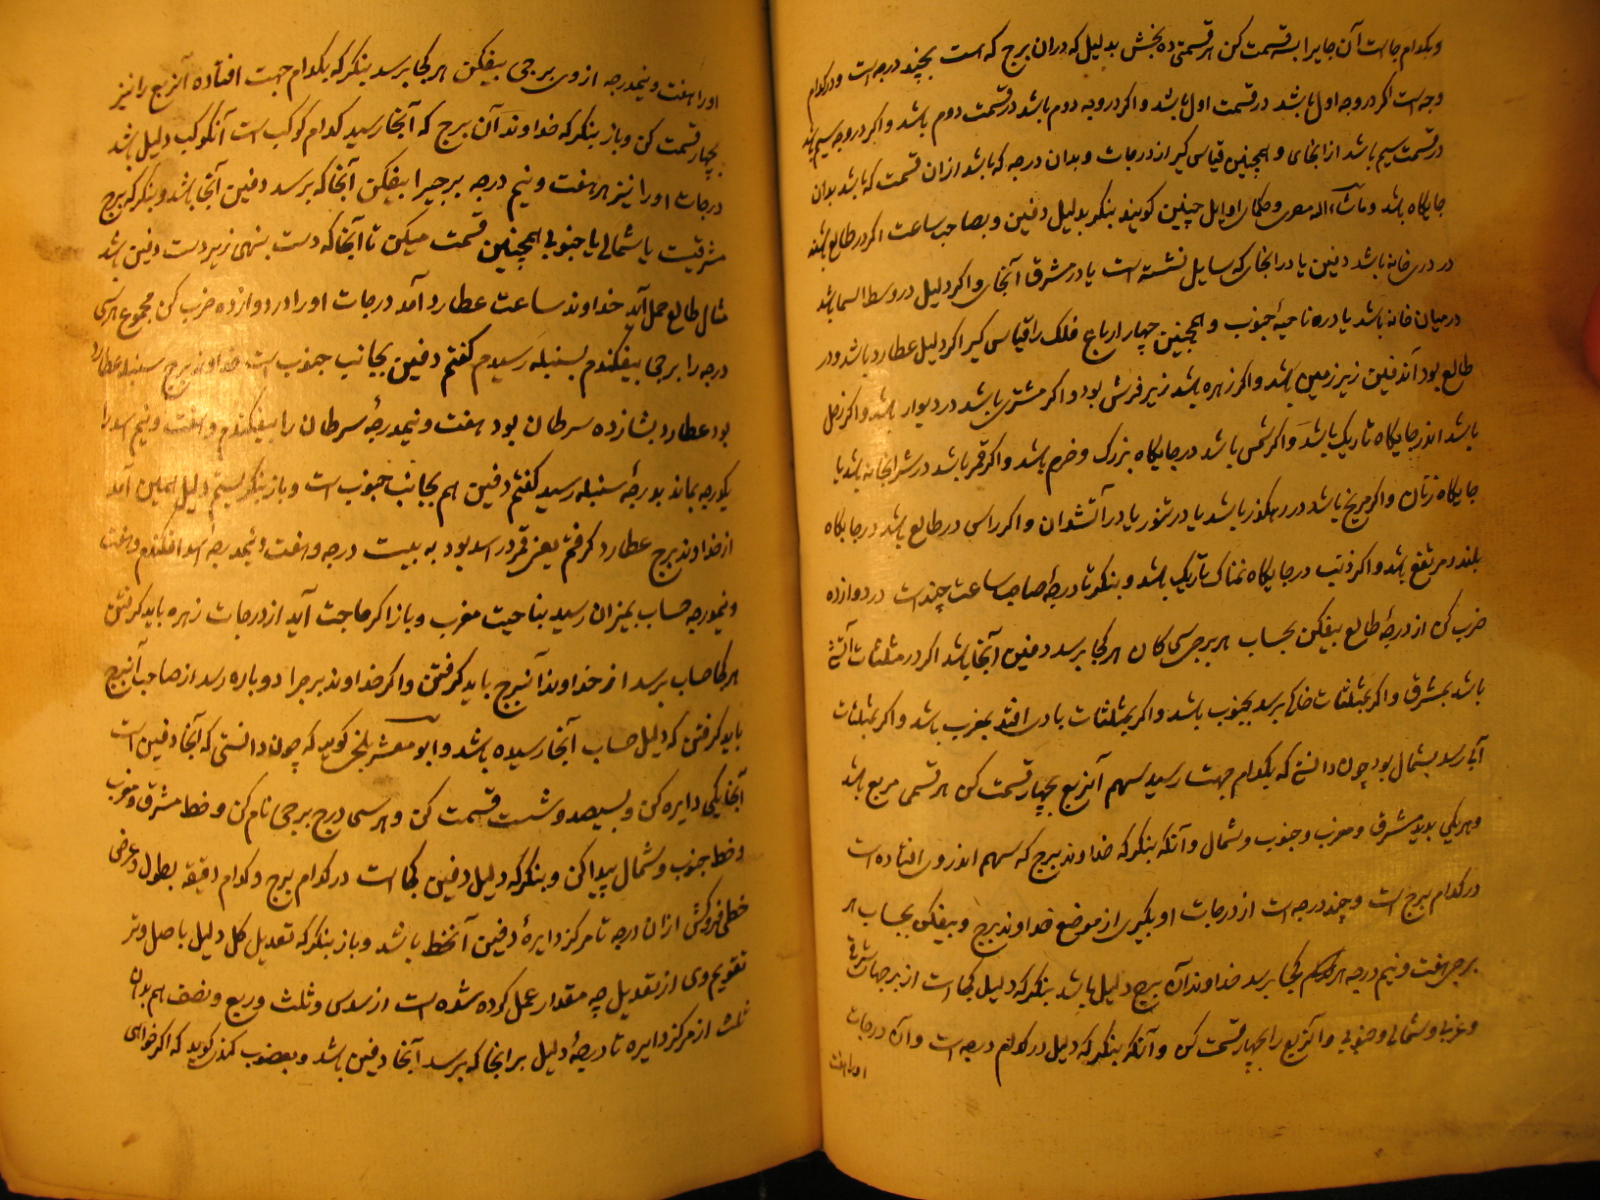 وبکدام جا است آن جایرا بسه قسمت کن هر قسمتی ده بخش بدلیل که دران برج که است بچند درجه است و در کدام
وجه است اکر در وجه اول باشد در قسمت اول باشد و اکر در وجه دوم باشد در قسمت دوم باشد و اکر در وجه سیم باشد
در قسمت سیم باشد از انجای و همچنین قیاس کیر از درجات و بدان درجه که باشد ازان قسمت که باشد بدان
جایکاه باشد و ماشاء الله مصری و حکمای اوایل چنین کویند بنکر بدلیل دفین و بصاحب ساعت اکر در طالع باشند
در در خانه باشد دفین یا در انجای که سایل نشسته است یا در مشرق آنجای و اکر دلیل در وسط السما باشد
در میان خانه باشد یا در ناحیهٔ جنوب و همچنین چهار ارباع فلک را قیاس کیر اکر دلیل عطارد باشد و در
طالع بود آن دفین زیر زمین باشد و اکر زهره باشد زیر فرش بود و اکر مشتری باشد در دیوار باشد و اکر زحل
باشد اندر جایکاه تاریک باشد و اکر شمس باشد در جایکاه بزرک و خرم باشد و اکر قمر باشد در شرابخانه باشد یا
جایکاه زنان و اکر مریخ باشد در رهکذر باشد یا در تنور یا در آتشدان و اکر راس در طالع باشد در جایکاه
بلند و مرتفع باشد و اکر ذنب در جایکاه نمناک تاریک باشد و بنکر تا درجهٔ صاحب ساعت چند است در دوازده
ضرب کن از درجهٔ طالع بیفکن بحساب هر برجی سی کان هر کجا برسد دفین آنجا باشد اکر در مثلثات آتشی
باشد بمشرق و اکر بمثلثات خاکی برسد بجنوب باشد و اکر بمثلثات بادی افتد بمغرب باشد و اکر بمثلثات
آبی رسد بشمال بود چون دانستی که بکدام جهت رسید سهم آنربع بچهار قسمت کن هر قسمی مربع باشد
و هر یکی پدید مشرق و مغرب و جنوب و شمال و آنکه بنکر که خداوند برج که سهم اندر وی افتاده است
در کدام برج است و چند درجه است از درجات او بکیری از موضع خداوند برج و بیفکن بحساب هر
برجی هفت و نیم درجه هر کجا برسد خداوند آن برج دلیل باشد بنکر که دلیل کجا است از برجهای شرقی
و غربی و شمالی و جنوبی و آنربع را بچهار قسمت کن و آنکه بنکر که دلیل در کدام درجه است و آن درجات
اورا هفت
اورا هفت و نیمدرجه از وی برجی بیفکن هر کجا برسد بنکر که بکدام جهت افتاده آنربع را نیز
بچهار قسمت کن و باز بنکر که خداوند آن برج که آنجا رسید کدام کوکب است آنکوکب دلیل باشد
درجات اورا نیز هر هفت و نیم درجه برجیرا بیفکن آنجا که برسد دفین آنجا باشد و بنکر که برج
مشرقیست یا شمالی یا جنوبی همچنین قسمت میکن تا آنجا که دست بنهی زیر دست دفین باشد
مثال طالع حمل آمد خداوند ساعت عطارد آمد درجات اورا در دوازده ضرب کن مجموع هر سی
درجه را برجی بیفکندم بسنبله رسیدم کفتم دفین بجانب جنوب است خداوند برج سنبله عطارد
بود عطارد بشانزده سرطان بود هفت و نیمدرجهٔ سرطان را بیفکندم و هفت و نیم اسد را
یکدرجه بماند بدرجهٔ سنبله رسید کفتم دفین هم بجانب جنوب است و باز بنکریستم دلیل همین آمد
از خداوند برج عطارد کرفتم یعنی قمر در اسد بود به بیست درجه و هفت و نیمدرجهٔ اسد افکندم و هفت
و نیمدرجه حساب بمیزان رسید بناحیت مغرب و باز اکر حاجت آید از درجات زهره باید کرفتن
هر کجا حساب برسد از خداوند آنبرج باید کرفتن و اکر خداوند برج را دوباره رسد از صاحب آنبرج
باید کرفتن که دلیل حساب آنجا رسیده باشد و ابو معشر بلخی کوید که چون دانستی که آنجا دفین است
آنجا یکی دایره کن و بسیصد و شست قسمت کن و هر سی درج برجی نام کن و خط مشرق و مغرب
و خط جنوب و شمال پیدا کن و بنکر که دلیل دفین کجا است در کدام برج و کدام دقیقه بطول و عرض
خطی فروکش ازان درجه تا مرکز دایرهٔ دفین آنخط باشد و باز بنکر که تعدیل کل دلیل باصل وتر
تقویم وی از تعدیل چه مقدار عمل کرده شده است از سدس و ثلث و ربع و نصف هم بدان
ثلث از مرکز دایره تا درجهٔ دلیل بر انجا که برسد آنجا دفین باشد و یعقوب کندی کوید که اکر خواهی